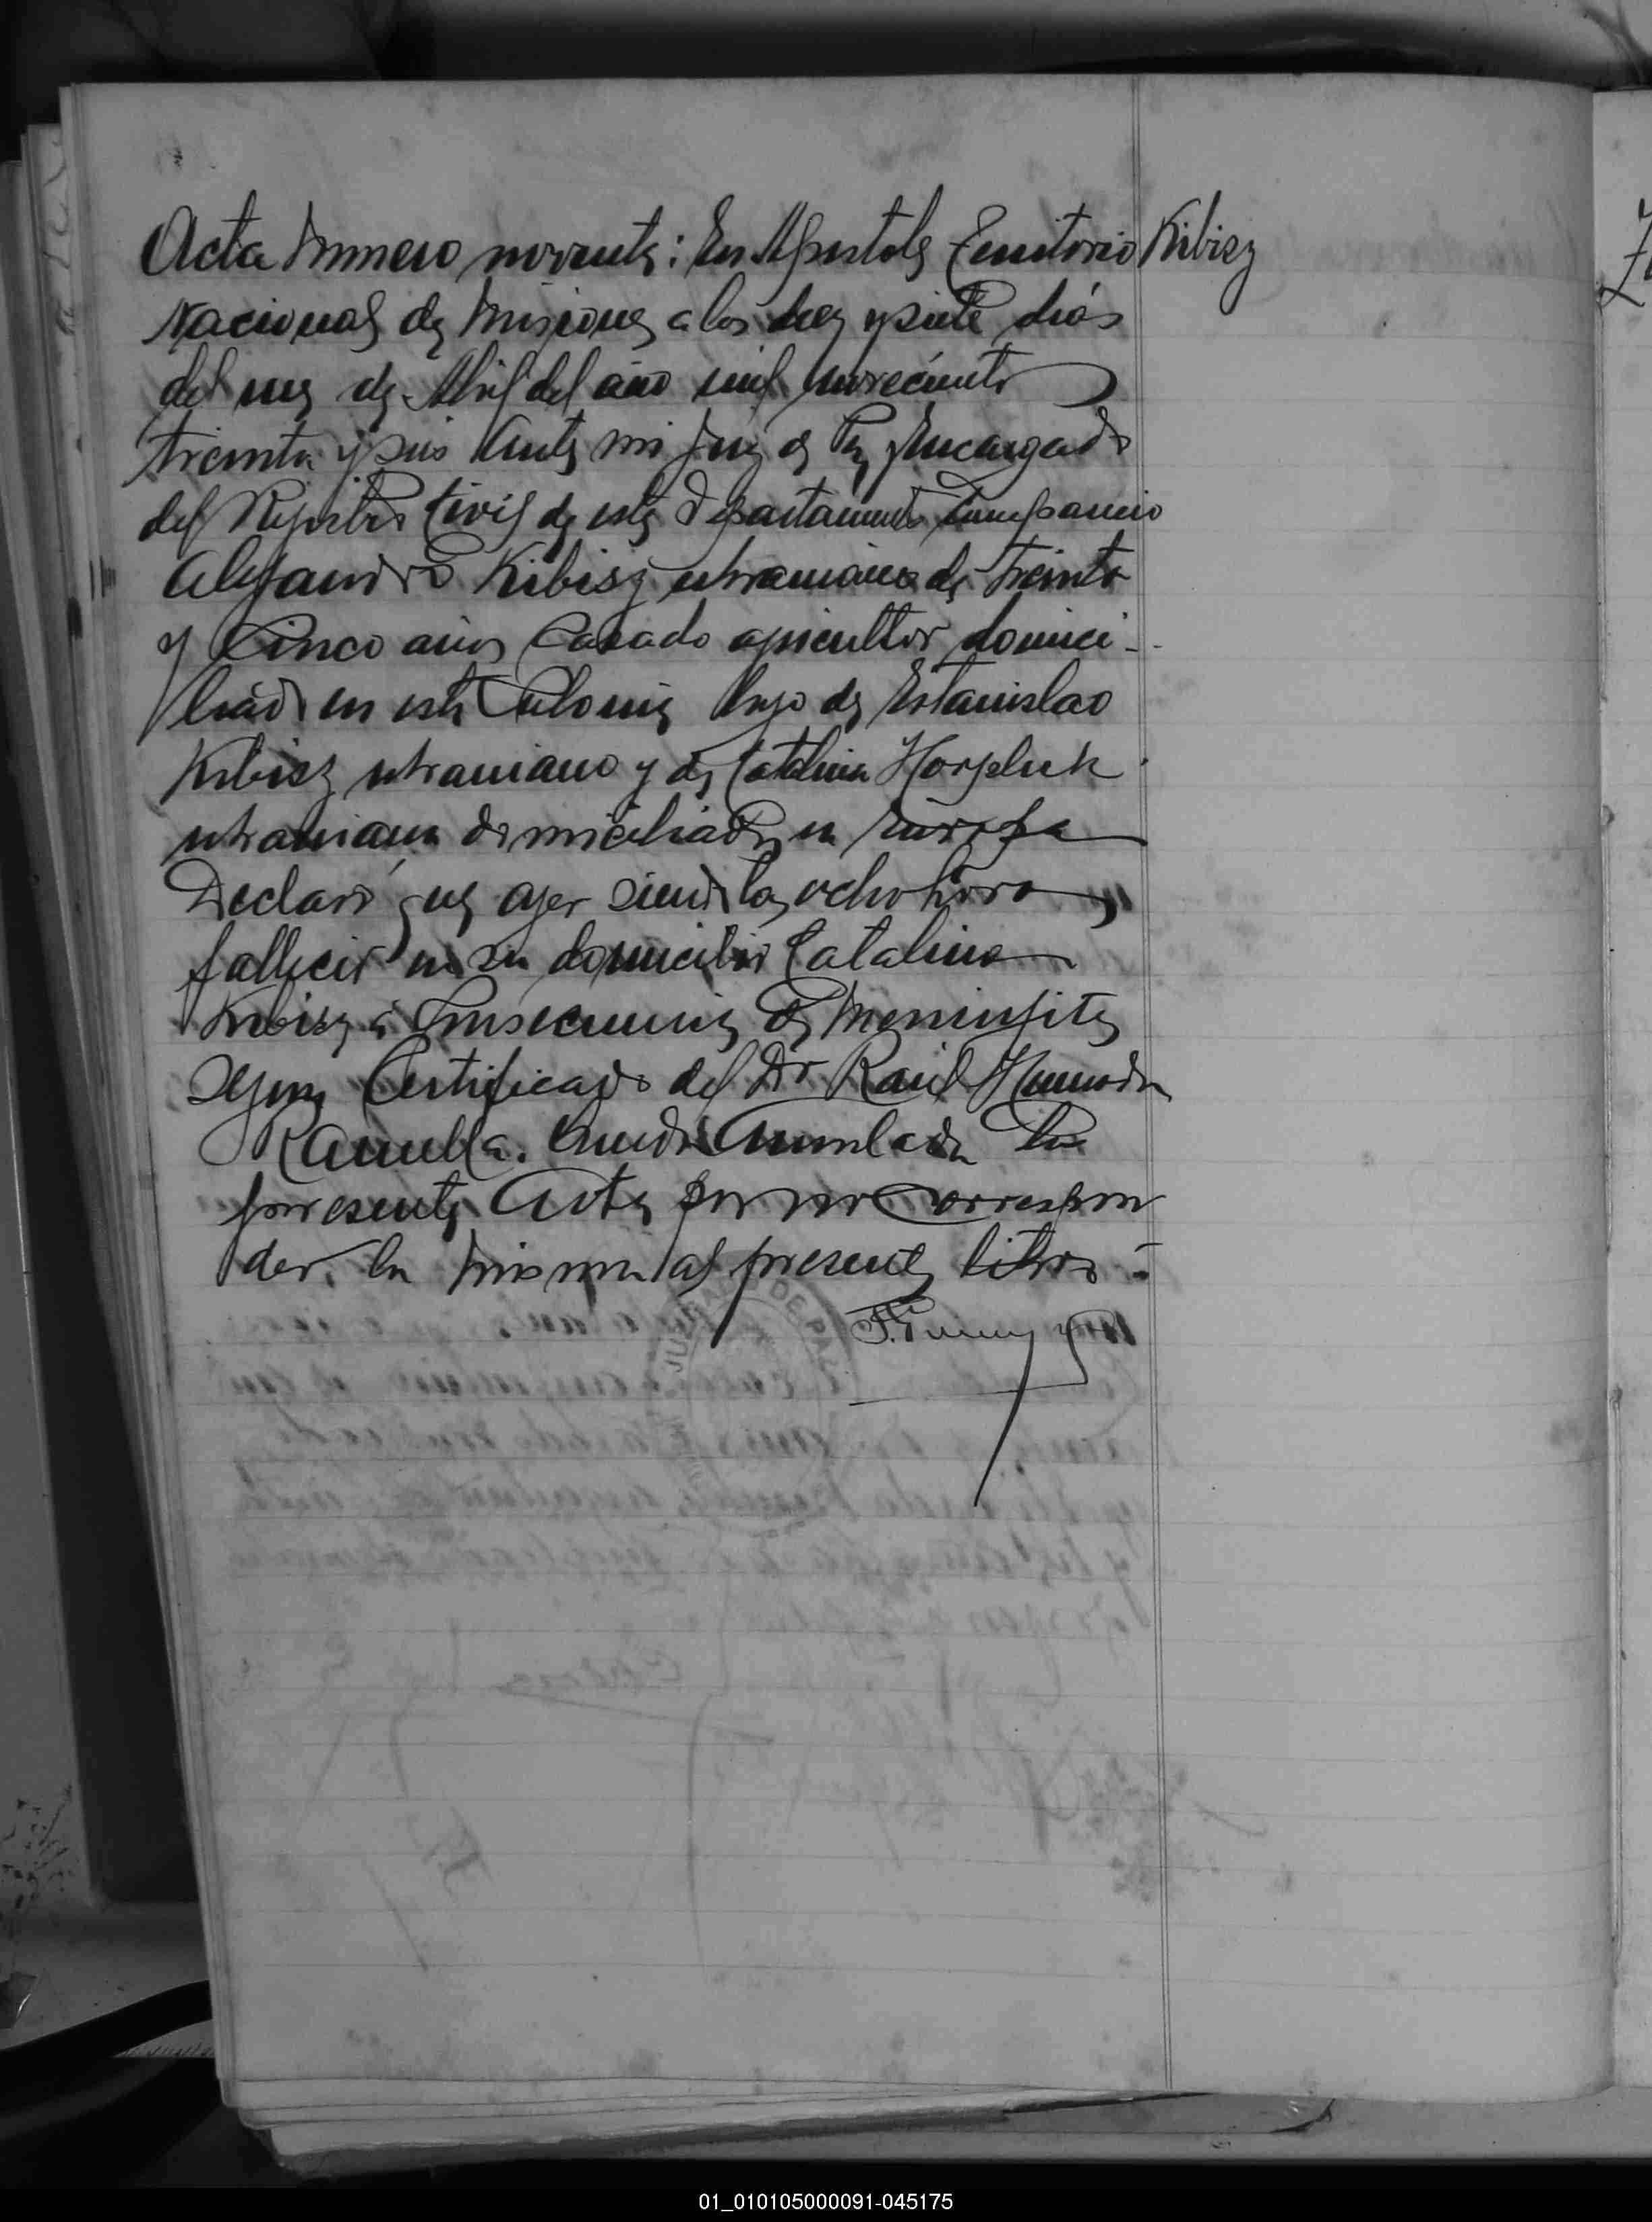 Acta Numero noventa: En Apostoles Territorio
Kibisz
Nacional de Misiones a los diez y siete dias
del mes de Abril del año mil novecientos
treinta y seis Ante mi Juez de Paz Encargado
del Registro Civil de este Departamento Comparecio
Alejandro Kibisz ukraniano de treinta
y Cinco años Casado agricultor domici-
liado en esta Colonia hijo de Estanislao
Kibisz ukraniano y de Catalina
ukraniana domiciliados en Europa
Declaró que ayer siendo las ocho horas
fallecio en su domicilio Catalina
Kibisz a Consecuencia de Meningitis
segun Certificado del Dr Raúl
Queda Anulada la
presente Acta por no correspon
der la misma al presente libro.-
JUZGADO DE PAZ
01_010105000091-045175